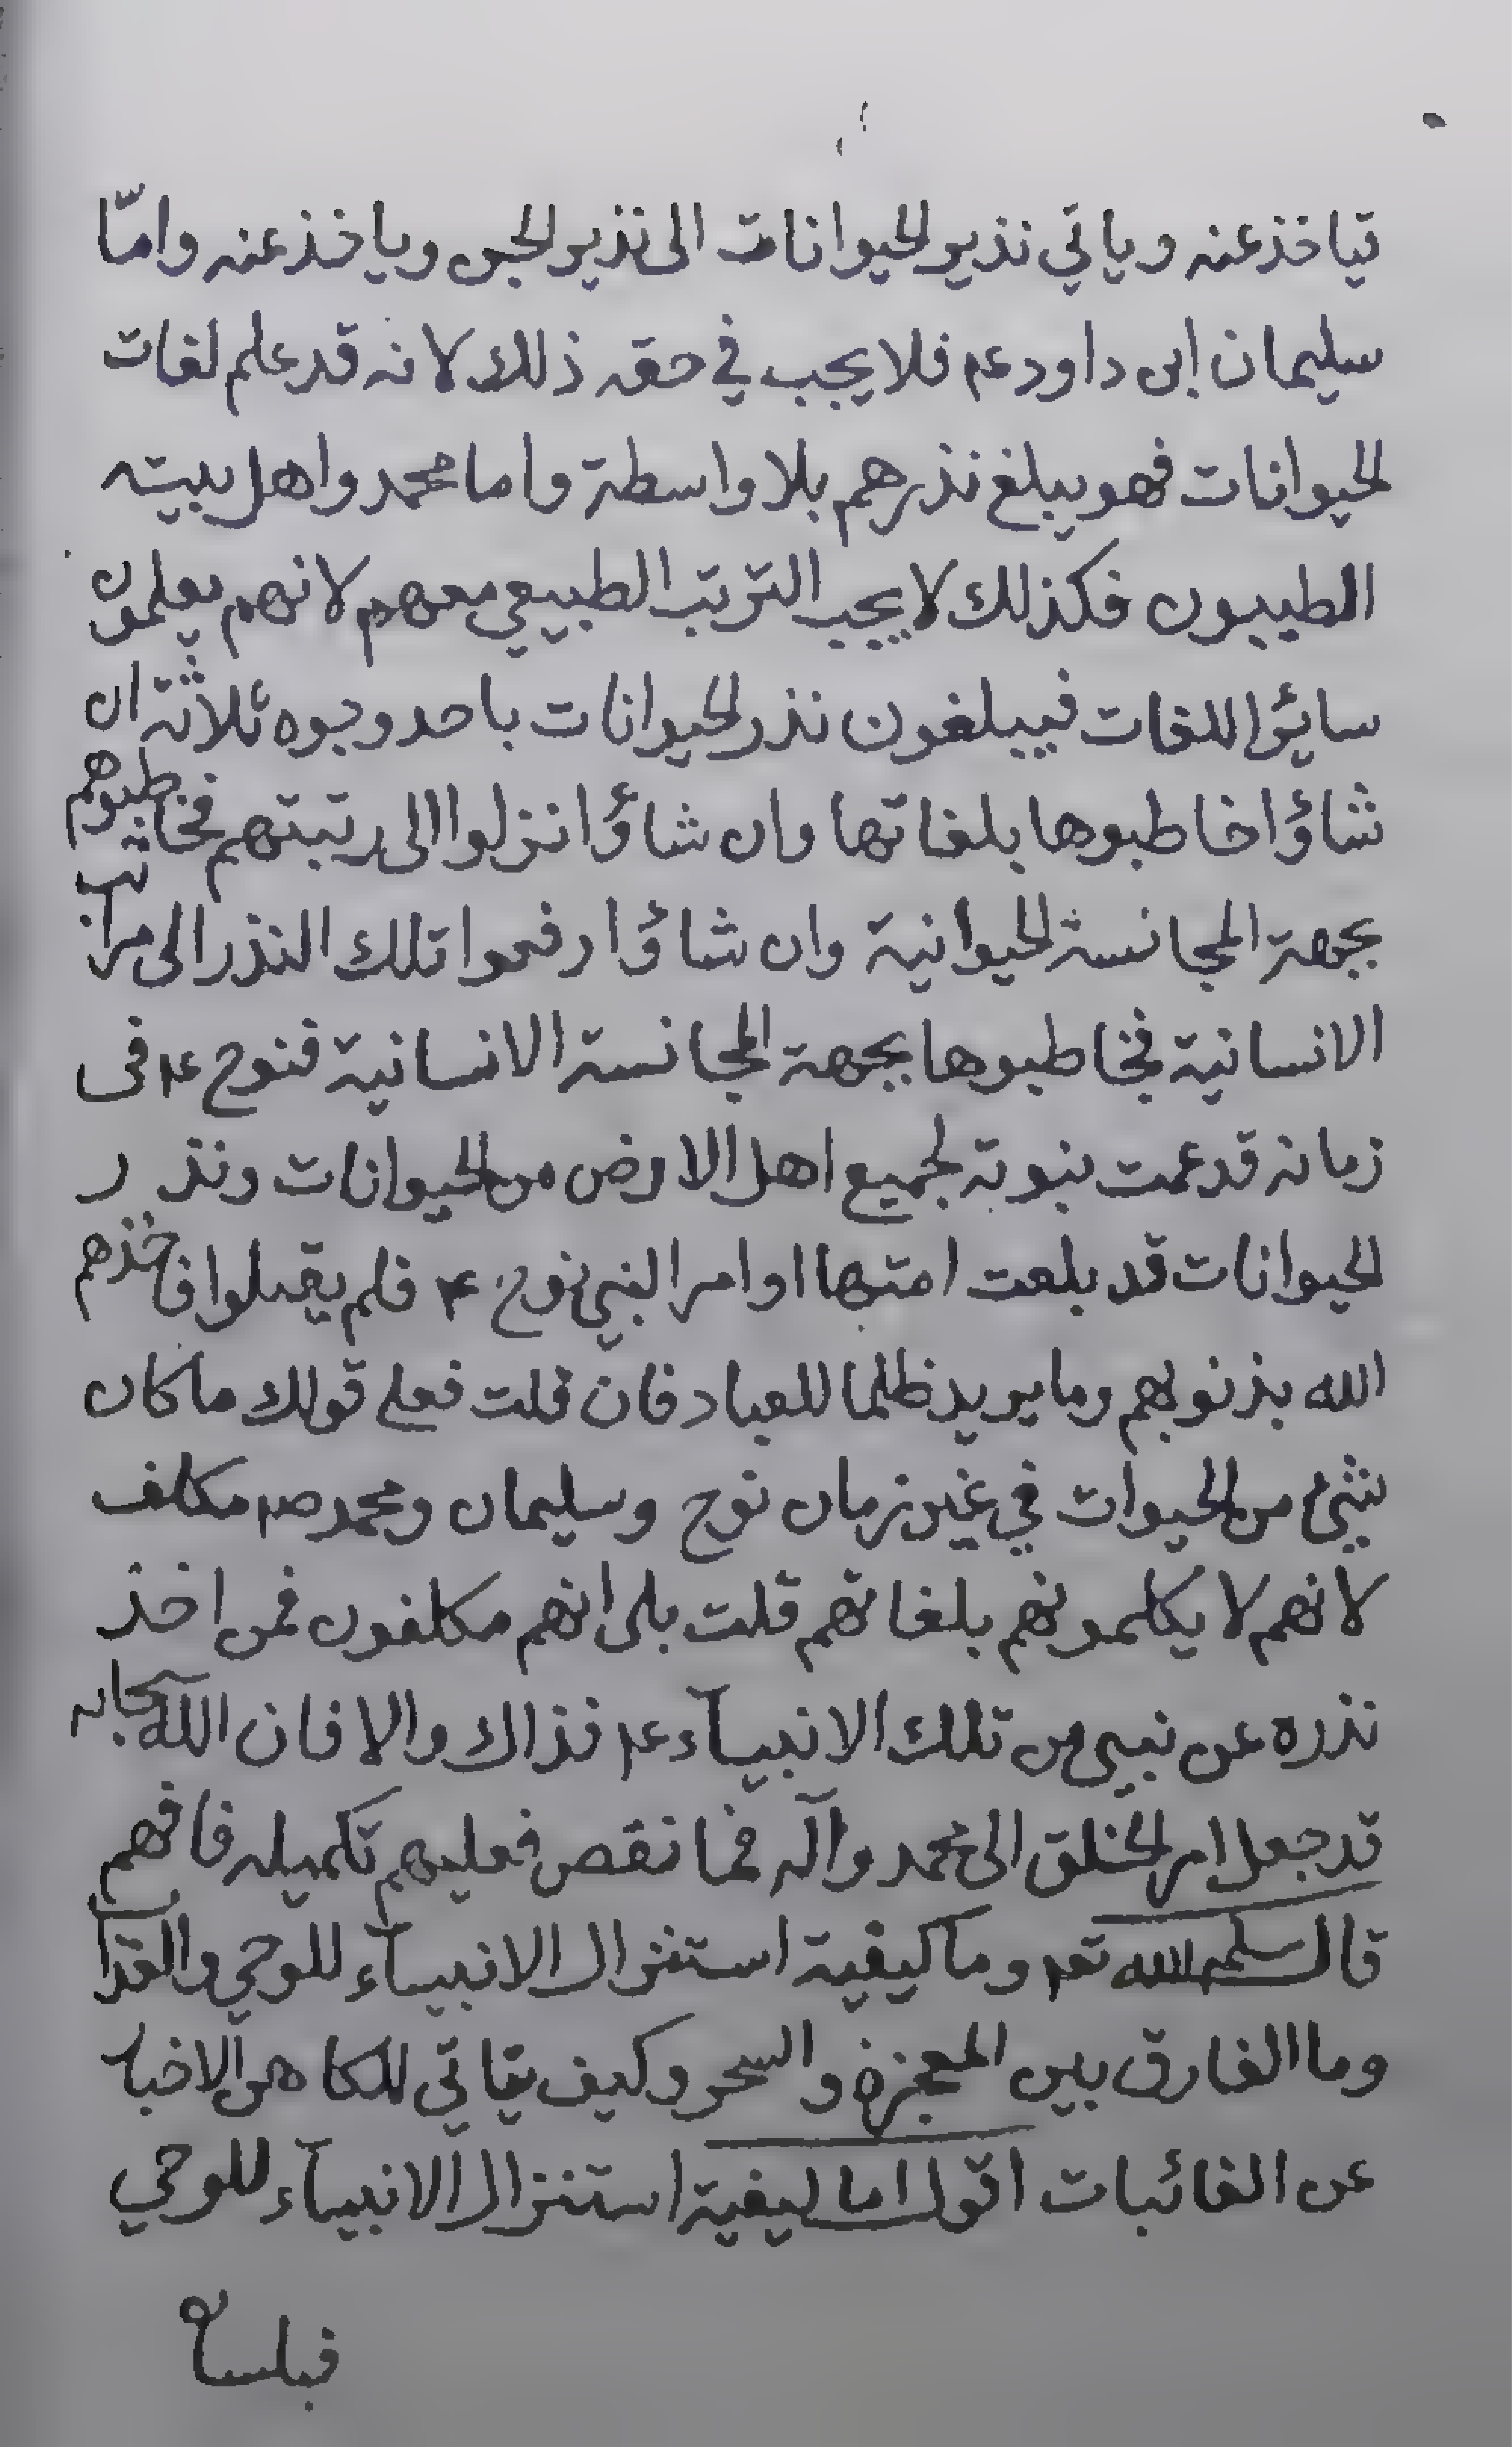 تياخذ عنه وياتي نذير الحيوانات الى نذير الجن وياخذ عنه وامّا
سليمان ابن داود عم فلا يجب في حقه ذلك لانه قد علم لغات
الحيوانات فهو يبلغ نذرهم بلا واسطة واما محمد واهل بيته
الطيبون فكذلك لا يجب الترتب الطبيعي معهم لانهم يعلمون
سائر اللغات فيبلغون نذر الحيوانات باحد وجوه ثلاثة ان
شاؤا خاطبوها بلغاتها وان شاؤا نزلوا الى رتبتهم فخاطبوهم
بجهة المجانسة الحيوانية وان شاؤا رفعوا تلك النذر الى مراتب
الانسانية فخاطبوها بجهة المجانسة الانسانية فنوح عم فى
زمانه قد عمت نبوته لجميع اهل الارض من الحيوانات ونذر
الحيوانات قد بلعت امتها اوامر النبي نوح عم فلم يقبلوا فاخذهم
الله بذنوبهم وما يريد ظلما للعباد فان قلت فعلى قولك ما كان
شئ من الحيوات في غير زمان نوح وسليمان ومحمد صم مكلف
لانهم لا يكلمونهم بلغاتهم قلت بلى انهم مكلفون فمن اخذ
نذره عن نبي من تلك الانبيآء عم فذاك والا فان الله سبحانه
قد جعل امر الخلق الى محمد وآله فما نقص فعليهم تكميله فافهم
قال سلمه الله تعم وما كيفية استنزال الانبيآء للوحي والقذاب
وما الفارق بين المعجزة والسحر وكيف يتاتي للكاهن الاخبار
عن الغائبات اقول اما ليفية استنزال الانبيآء للوحي
فبلسا